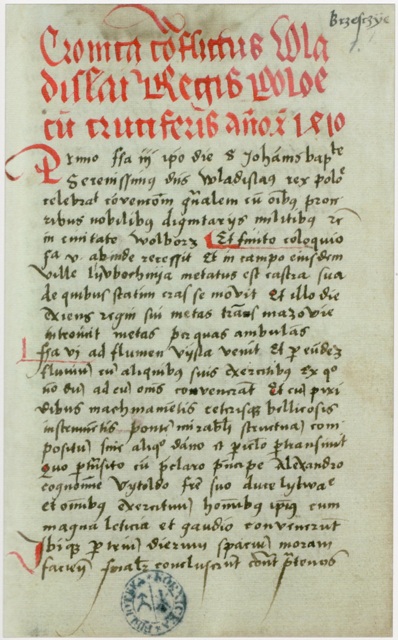 Brzesczye
Cronica conflictus Wla
dislai Regis Polo͞e
cū cruciferis año xi 1410
Primo fīa iij ip͞o die S Johānis bap͞te
Serenissimus dn̄s Wladislaus rex polo͞e
celebrat co͞vencōm gn̄alem cū oībus proce
ribus nobilibus dignitarijs militibus rc
in civitate Wolborz Et finito coloquio
fīa v. abinde recessit Et in campo eiusdem
ville Lubochnija metatus est castra sua
de quibus statim cras se movit Et illo die
exiens regni sui metas trans mazovie
introivit metas per quas ambulans
fīa vi ad flumen vysla venit Et p eūdez
fluviū cū aliquibus suis exercitibus ex quo
nō dū ad eū om̄s convenerant Et cū pixi
dibus machinamētis ceterisque bellicosis
instrumētis ponte mirabili structura com
positū sine aliquo dāno et periclo pertransivit
Quo prānsito cū preclaro principe Alexandro
cognomine Vytoldo fr̄e suo duce lytwae
et om̄ibus exercituū hom̄ibus ip̄ius cum
magna leticia et gaudio convenerunt
Ibique p triū dierum spaciū moram
facien̄ simul concluserunt contra prutenos